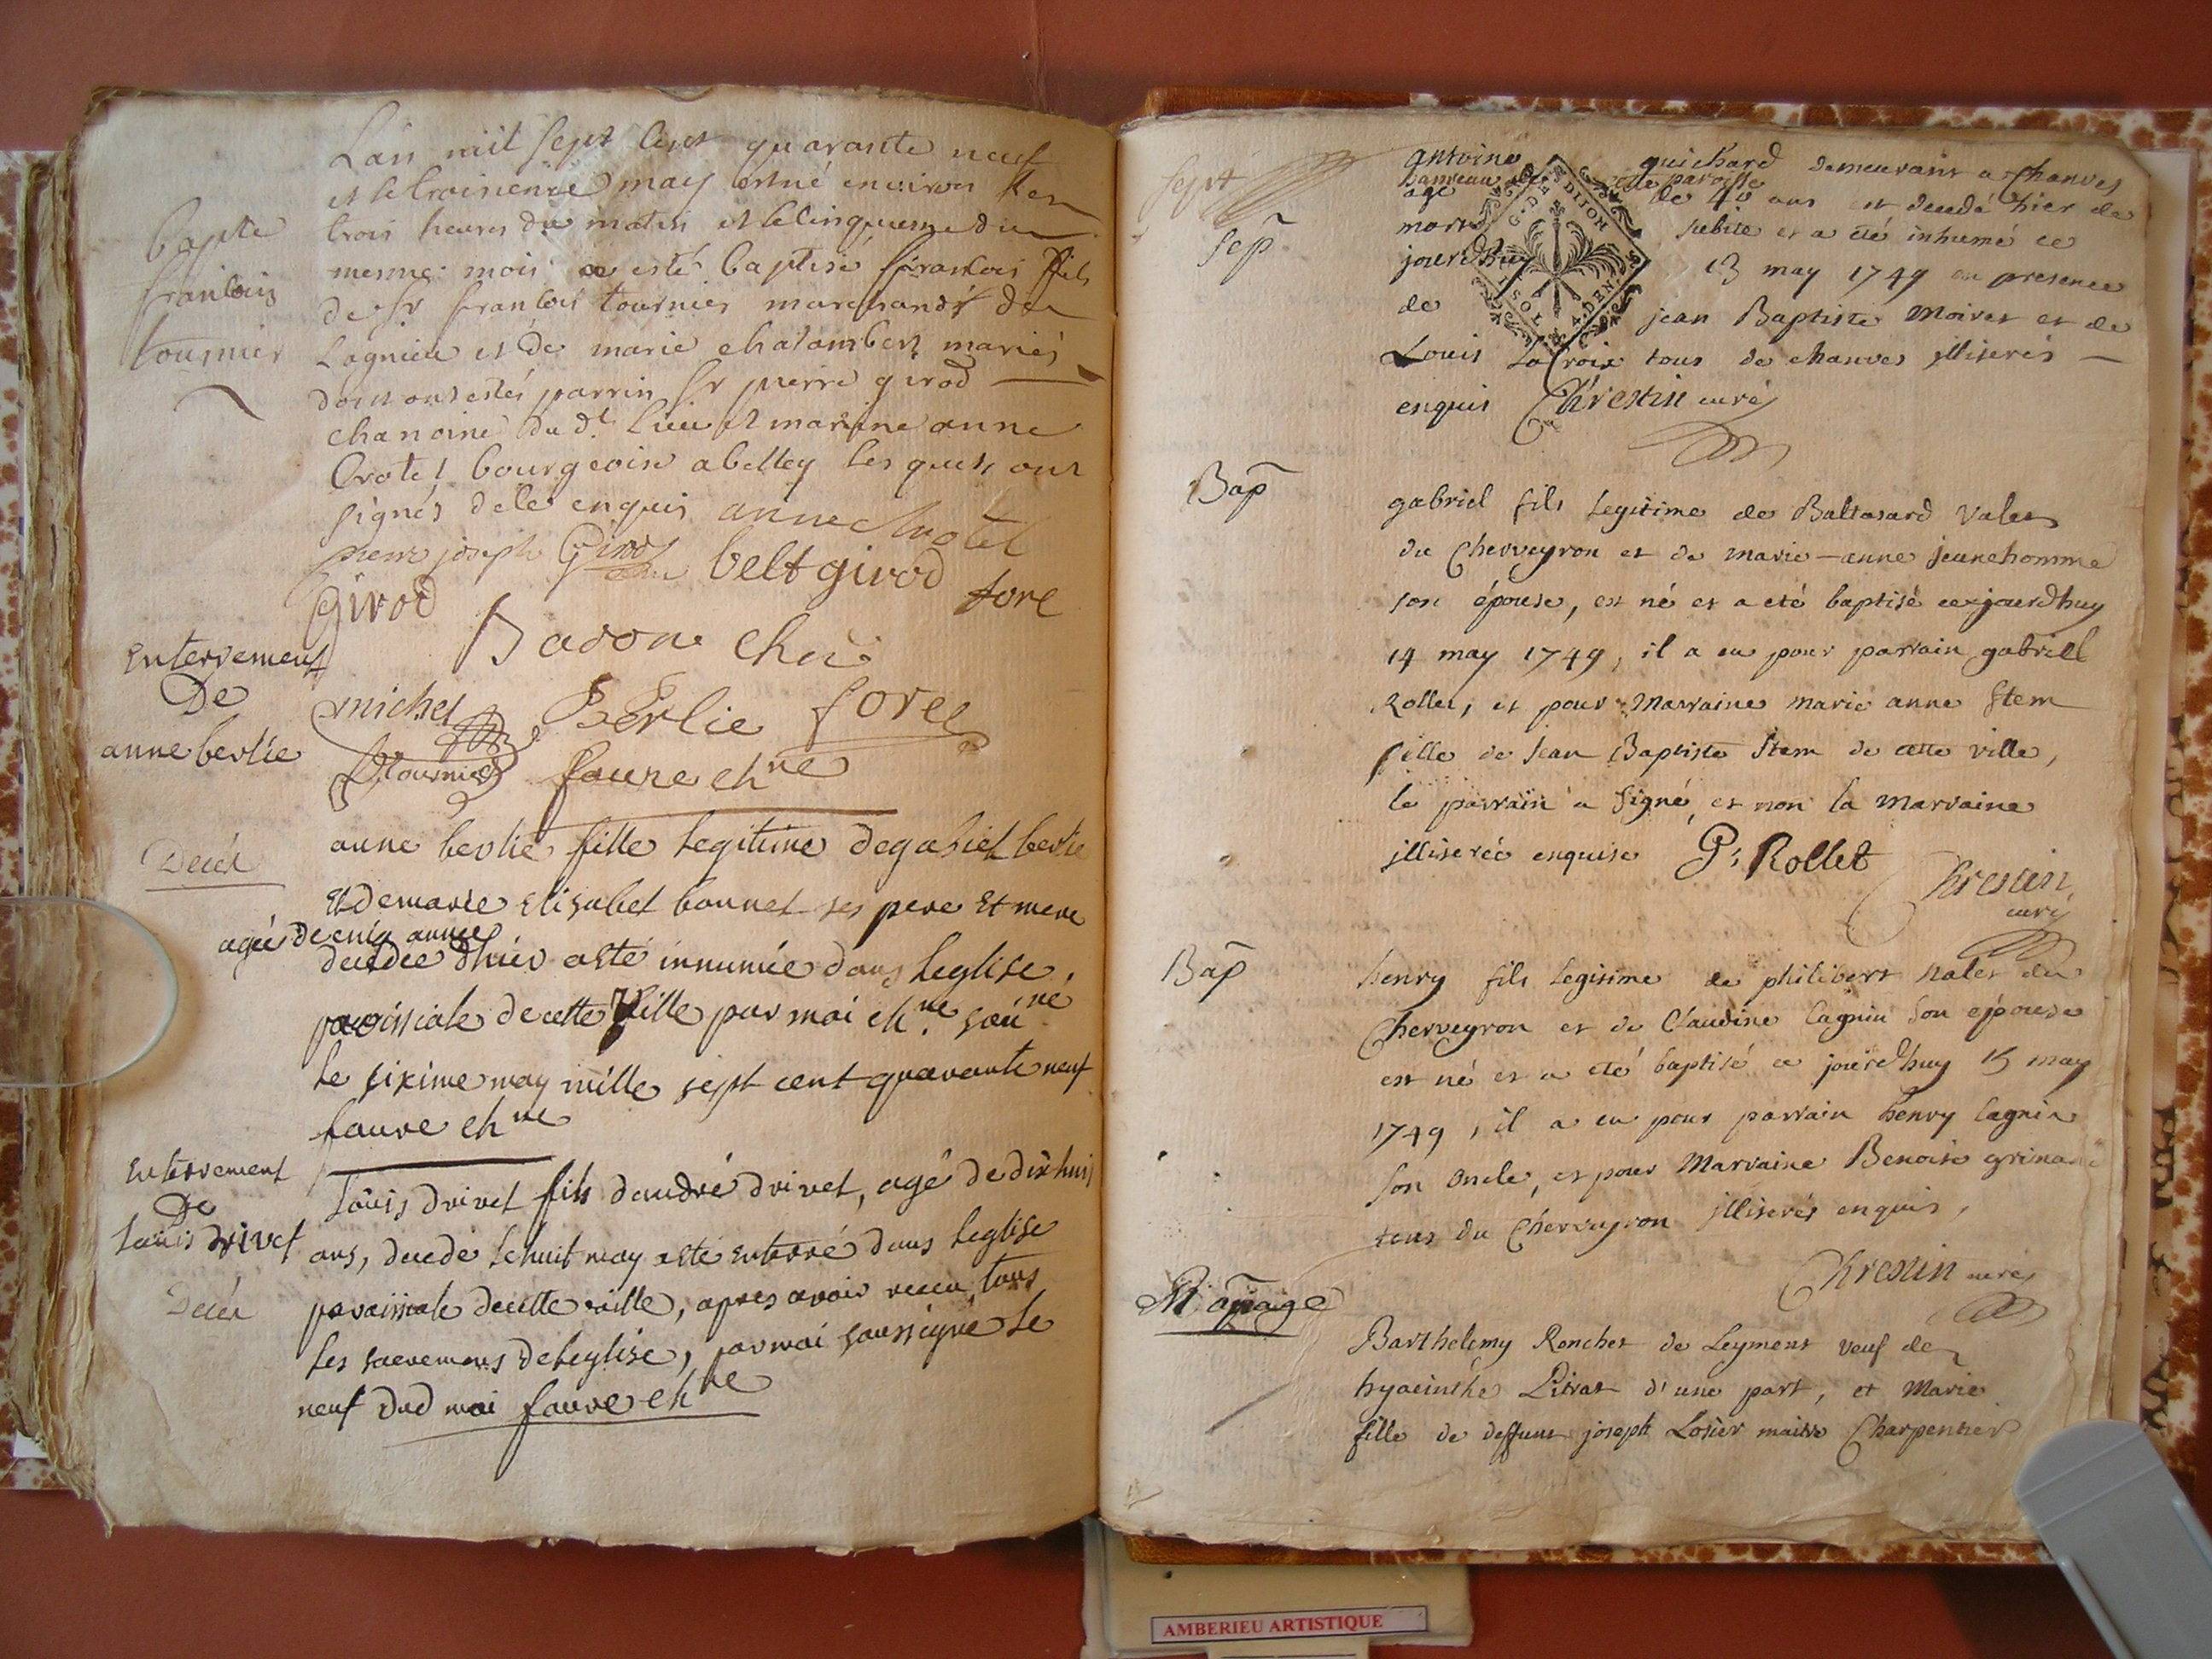 Lan mil sept cent quarante neuf
et le troisieme may est né environ les
trois heures du matin et le cinquiesme du
mesme mois a esté baptisé francois fils
de Sr francois tournier marchand de
Lagnieu et de marie chalambert mariés
dont ont estés parrin Sr pierre girod
chanoine du dt lieu et marine anne
bourgeoise a belley les quels ont
signés de ce enquis anne
pierre joseph Girod belt girod
girod
Bapte
francois
tournier
chne
Enterrement
De
anne berlie
michel BErlie forel
tournier faure chne
Decés
anne berlie fille legitime de gabriel berlie
Et de marie Elisabet bonnet ses pere Et mere
agée de cinq années
decedée d'hier a esté innumée dans leglise
paroissiale de cette Ville par moi chne souné
le sixime may mille sept cent quarante neuf
faure chne
Enterrement
De
Louis drivet
Decés
Louis drivet fils dandré drivet, agé de dix huit
ans, decedé le huit may a été enterré dans leglise
paroissiale de cette ville, apres avoir recu tous
les sacremens de leglise, par moi soussigné le
neuf dud moi faure chne
Sept
Sep
antoine guichard demeurant a Chanves
hameau de cette paroisse
agé de 40 ans est decedé hier de
mort subite et a été inhumé ce
jourdhuy 13 may 1749 en presence
de jean Baptiste Moiret et de
Louis LaCroix tous de chanves illiterés
enquis Chrestin curé
G. DE DIJON
Bap
gabriel fils legitime de Baltasard Valet
du Cherveyron et de marie-anne jeunehomme
son épouse, est né et a eté baptisé ce jourdhuy
14 may 1749, il a eu pour parrain gabriel
Rollet, et pour Marraine marie anne Stem
fille de jean Baptiste Stem de cette ville,
le parrain a signé, et non la marraine
illiterée enquise G: Rollet
Chrestin
curé
Bap
henry fils legitime de philibert Valet du
Cherveyron et de Claudine Cagnin son épouse
est né et a eté baptisé ce jourdhuy 15 may
1749, il a eu pour parrain henry Cagnin
son oncle, et pour Marraine Benoite
tous du Cherveyron illiterés enquis,
Chrestin curé
Mariage
Barthelemy Ronchet de Leyment veuf de
hyacinthe Litrat d'une part, et Marie
fille de deffunt joseph Losier maitre Charpentier
AMBERIEU ARTISTIQUE